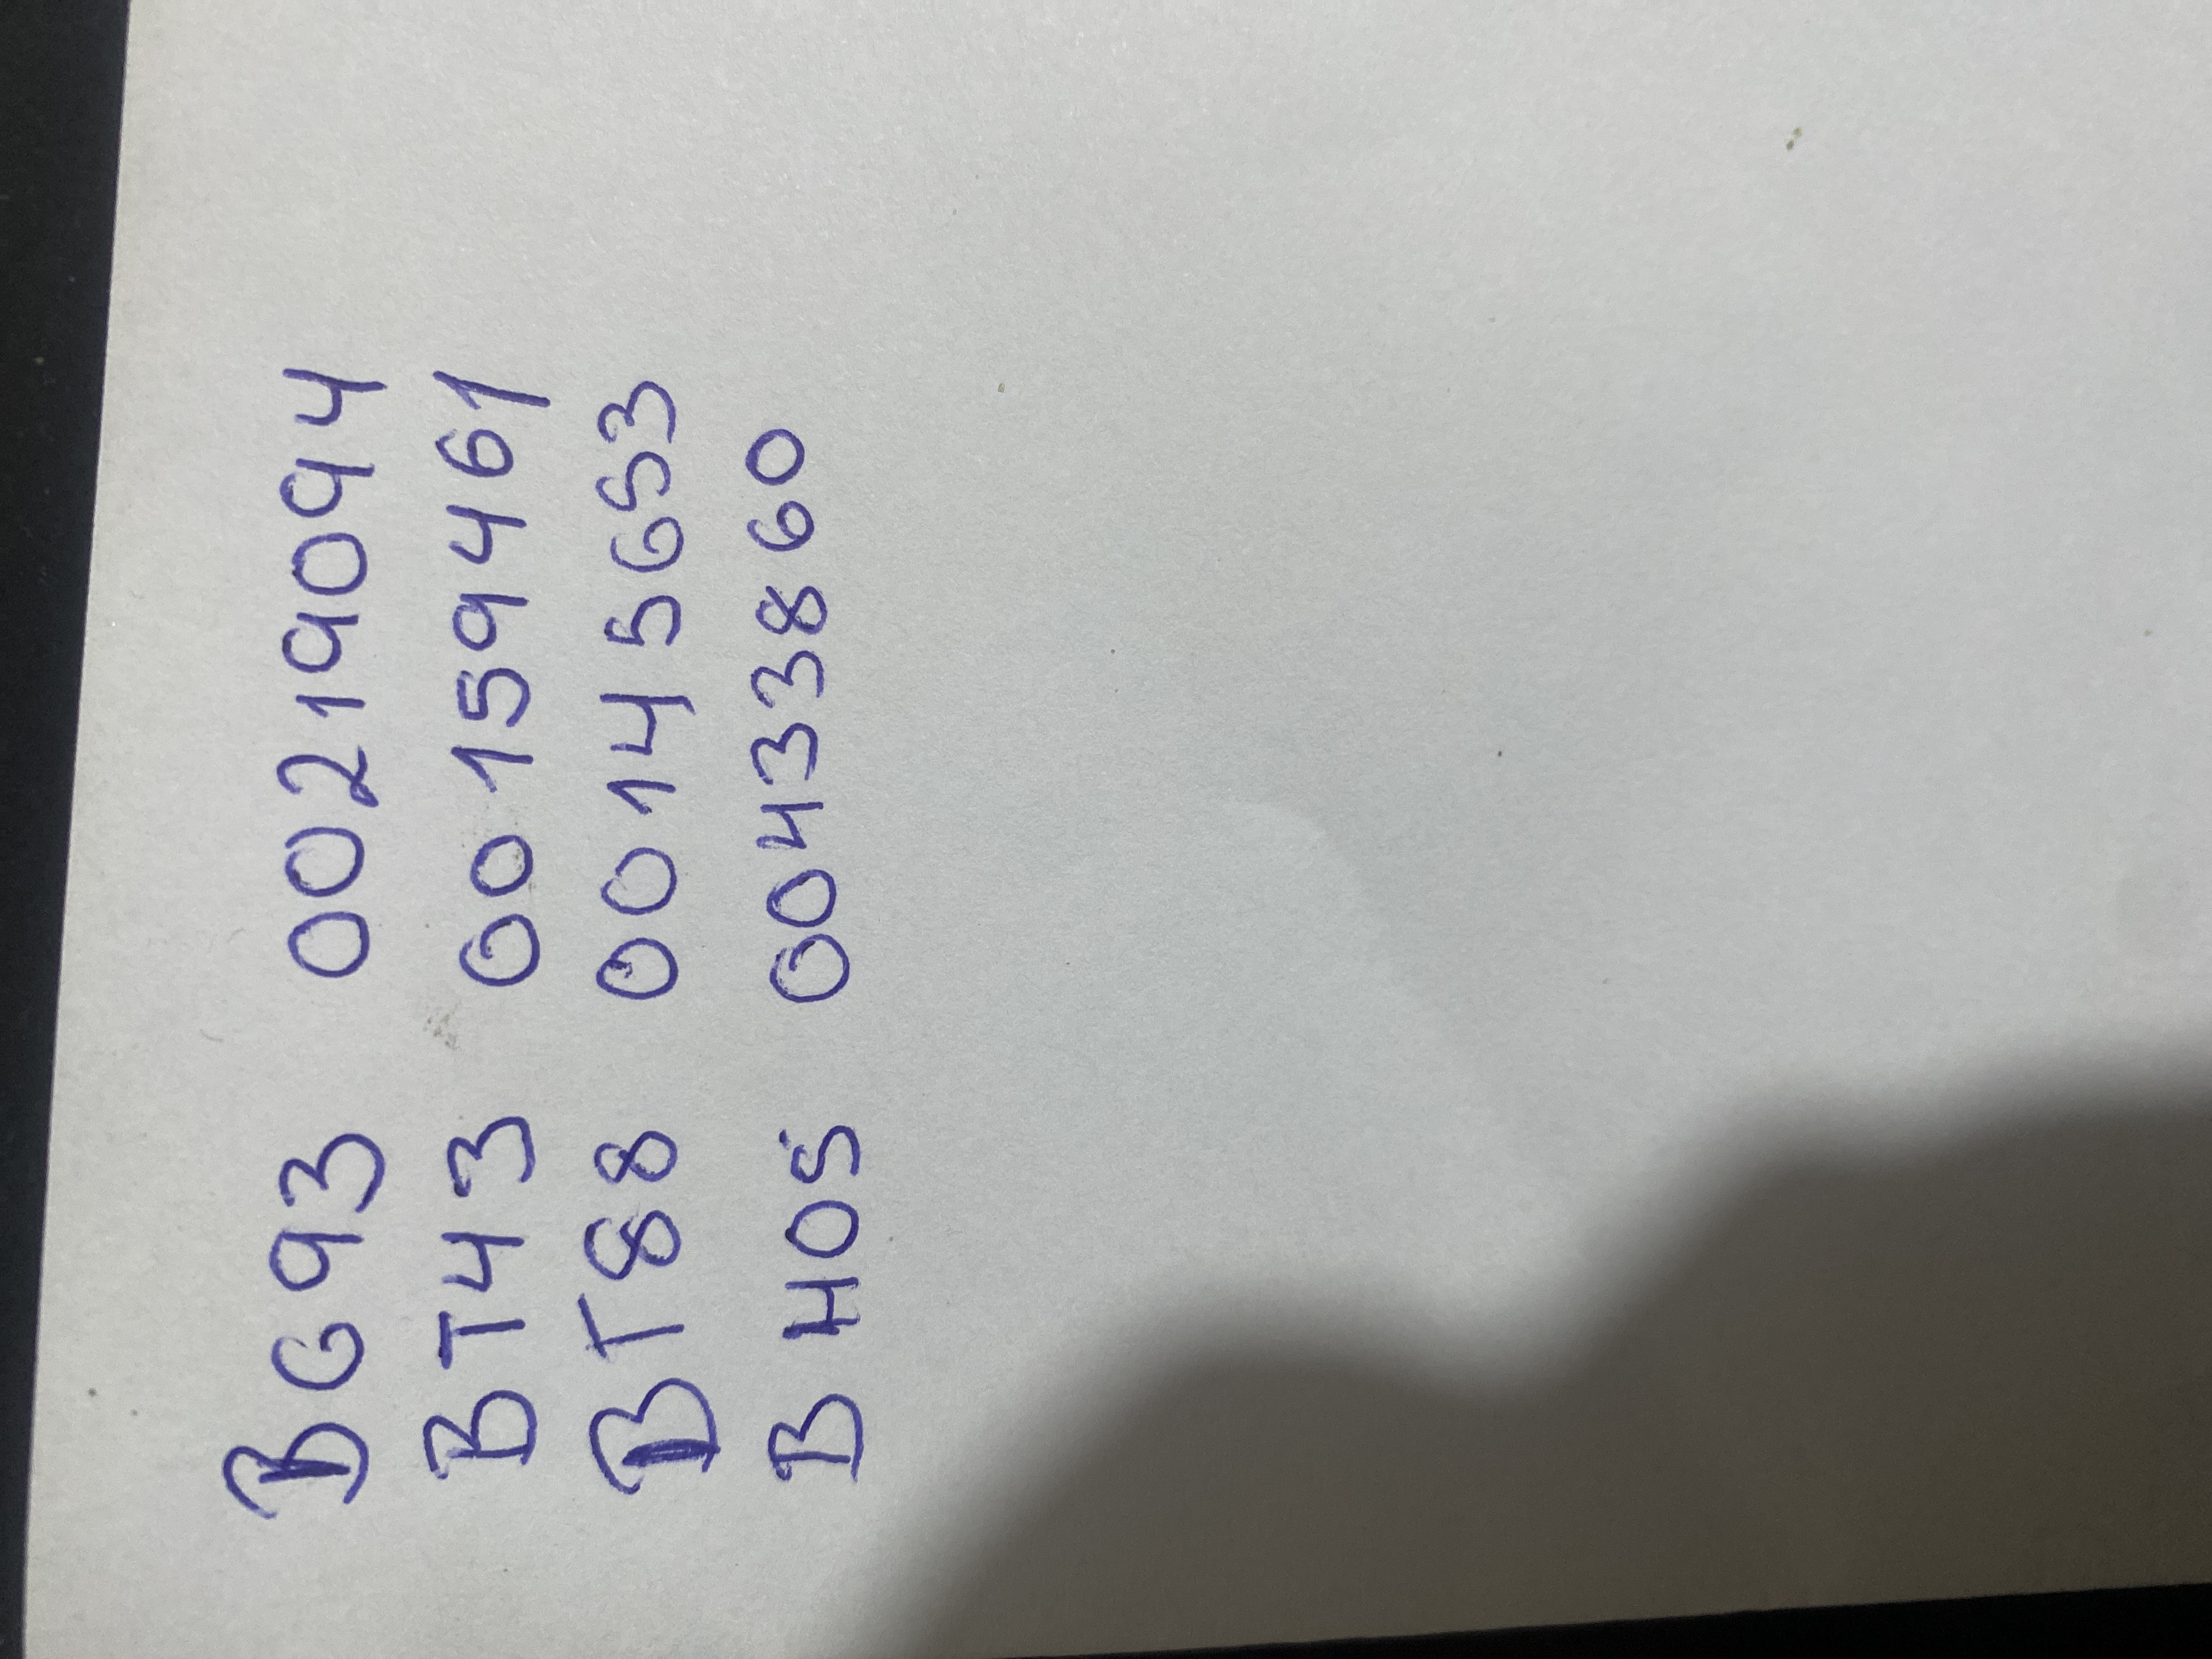 BG93 00219094
BT43 00159461
BT88 00145653
BH05 00433860